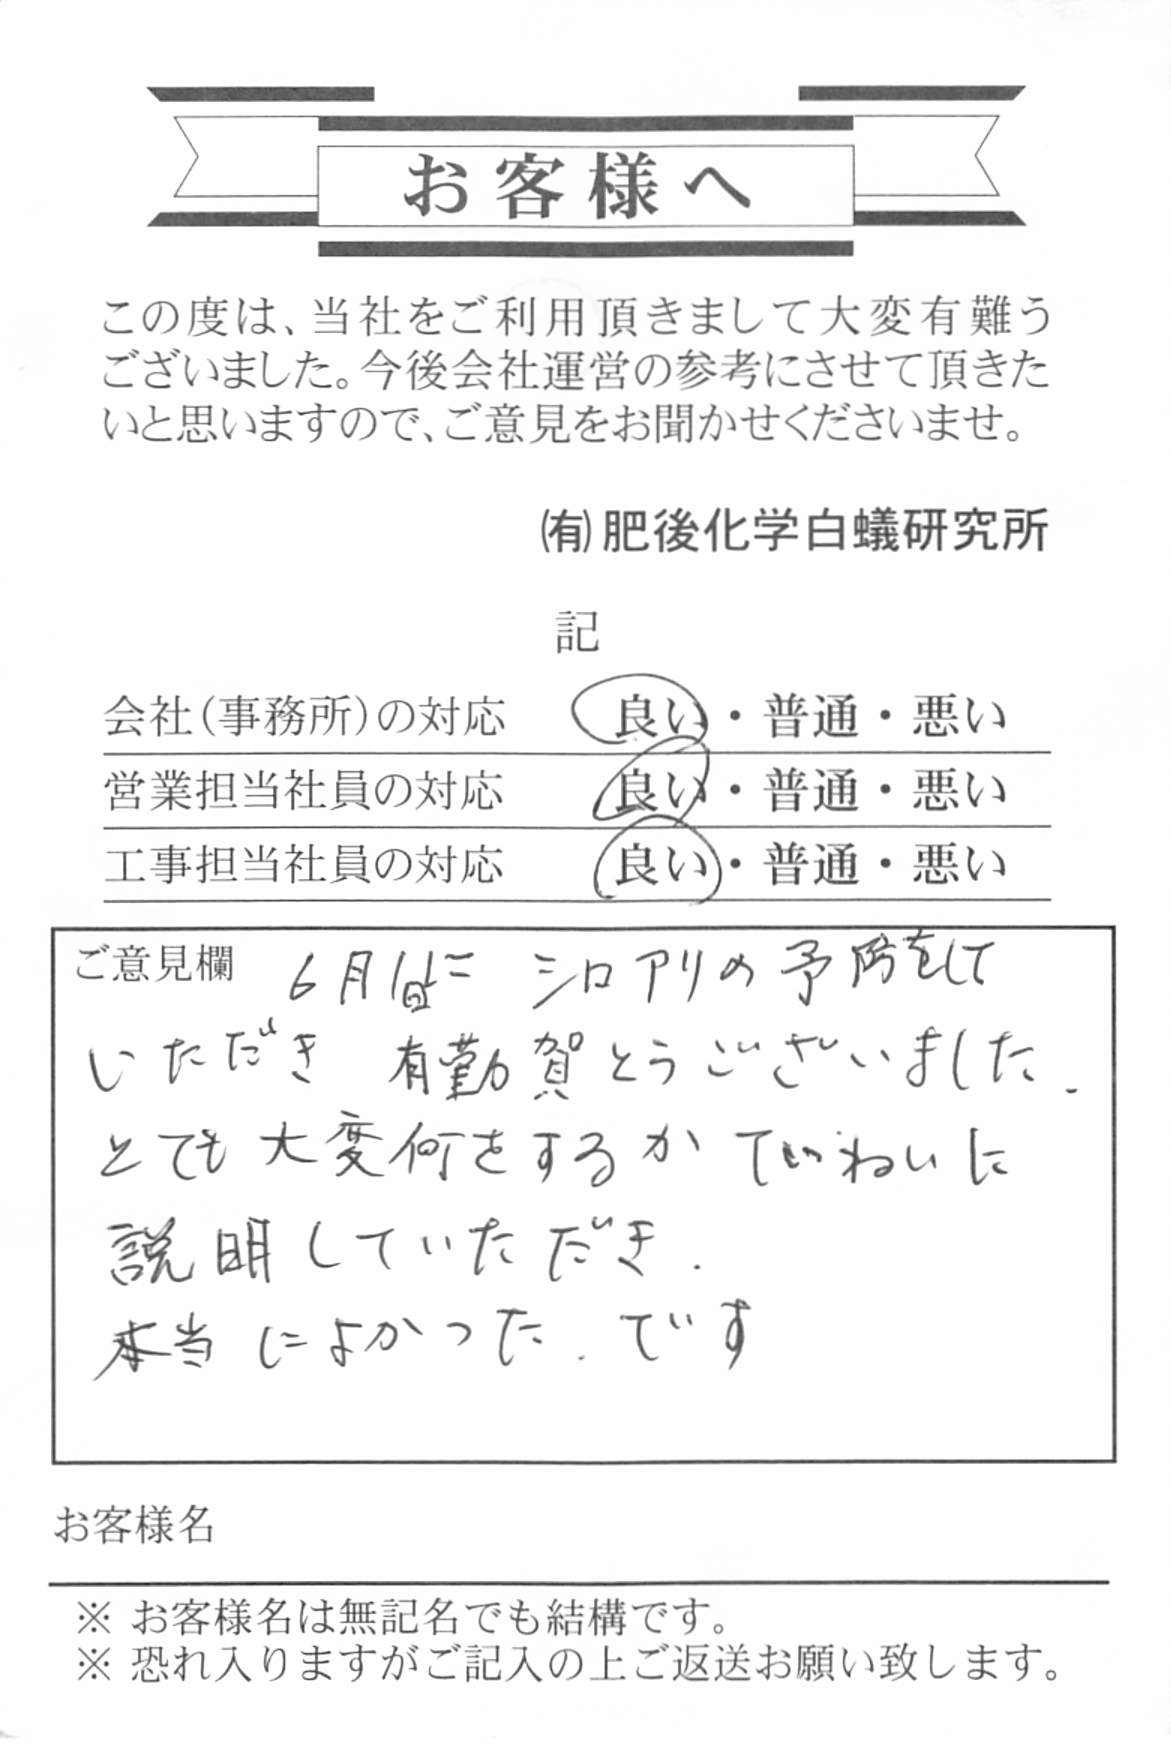 お客様へ
この度は、当社をご利用頂きまして大変有難う
ございました。今後会社運営の参考にさせて頂きた
いと思いますので、ご意見をお聞かせくださいませ。
㈲肥後化学白蟻研究所
記
会社(事務所)の対応 良い・普通・悪い
営業担当社員の対応 良い・普通・悪い
工事担当社員の対応 良い・普通・悪い
ご意見欄 6月1日に シロアリの予防をして
いただき 有勤賀とうございました.
とても大変何をするか ていねいに
説明していただき.
本当によかった.です
お客様名
※ お客様名は無記名でも結構です。
※ 恐れ入りますがご記入の上ご返送お願い致します。